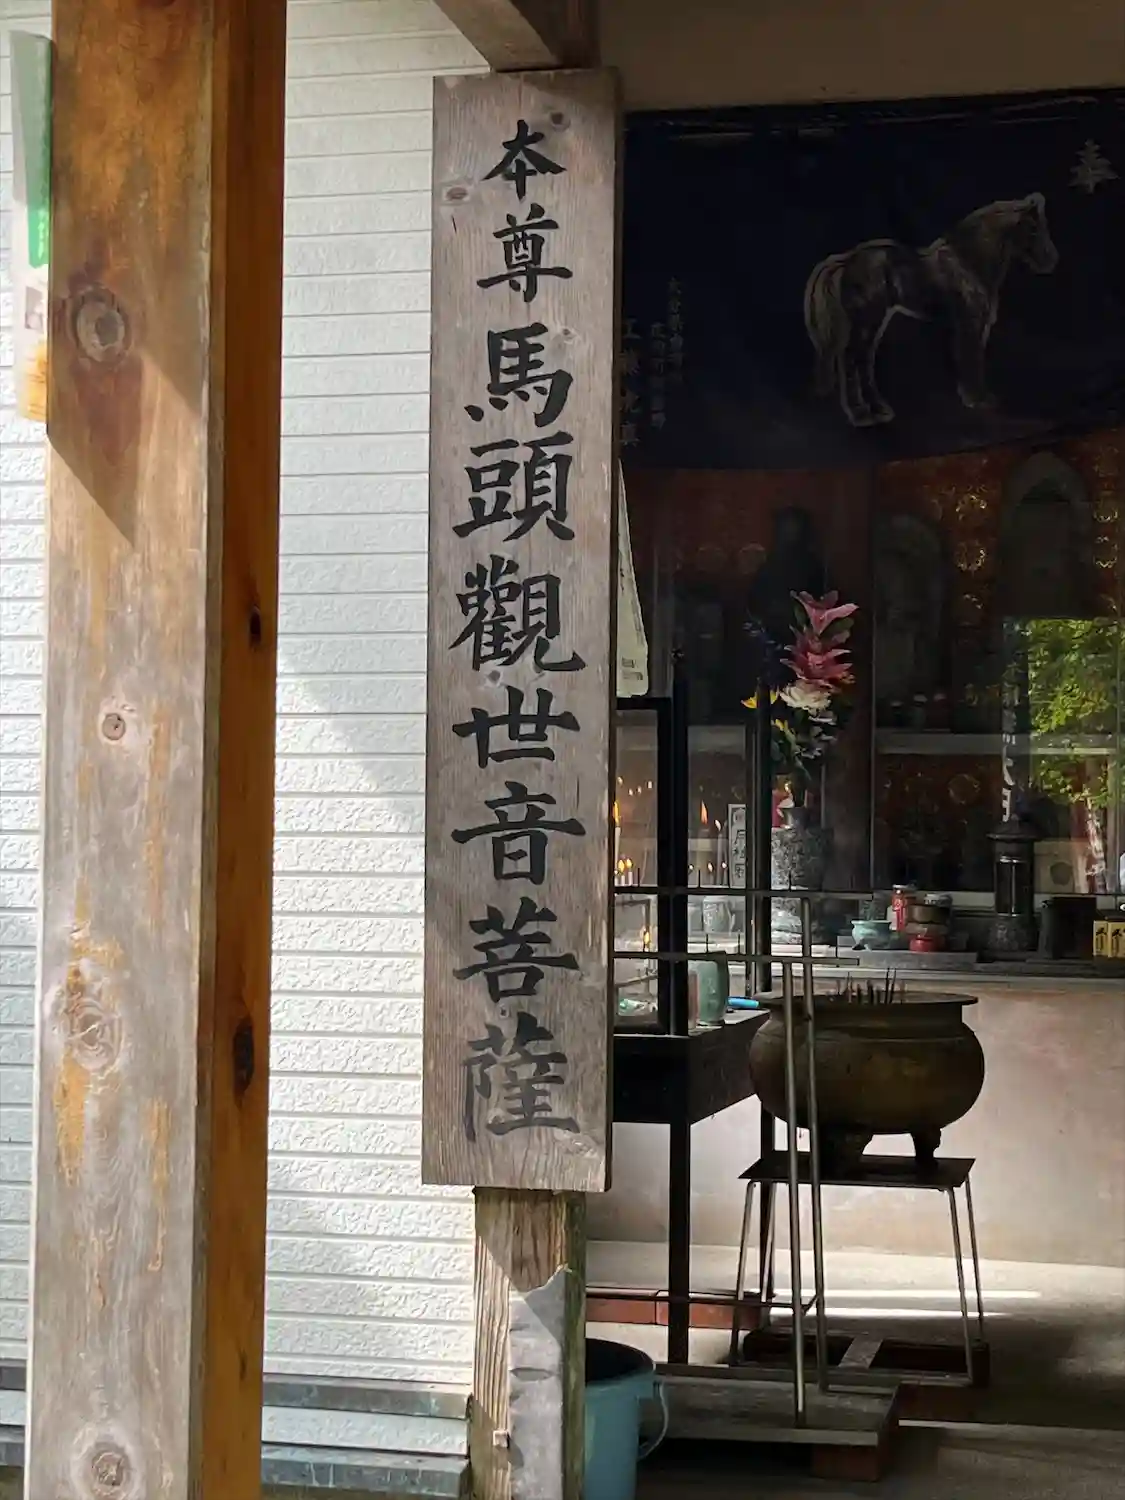 本尊馬頭觀世音菩薩
奉